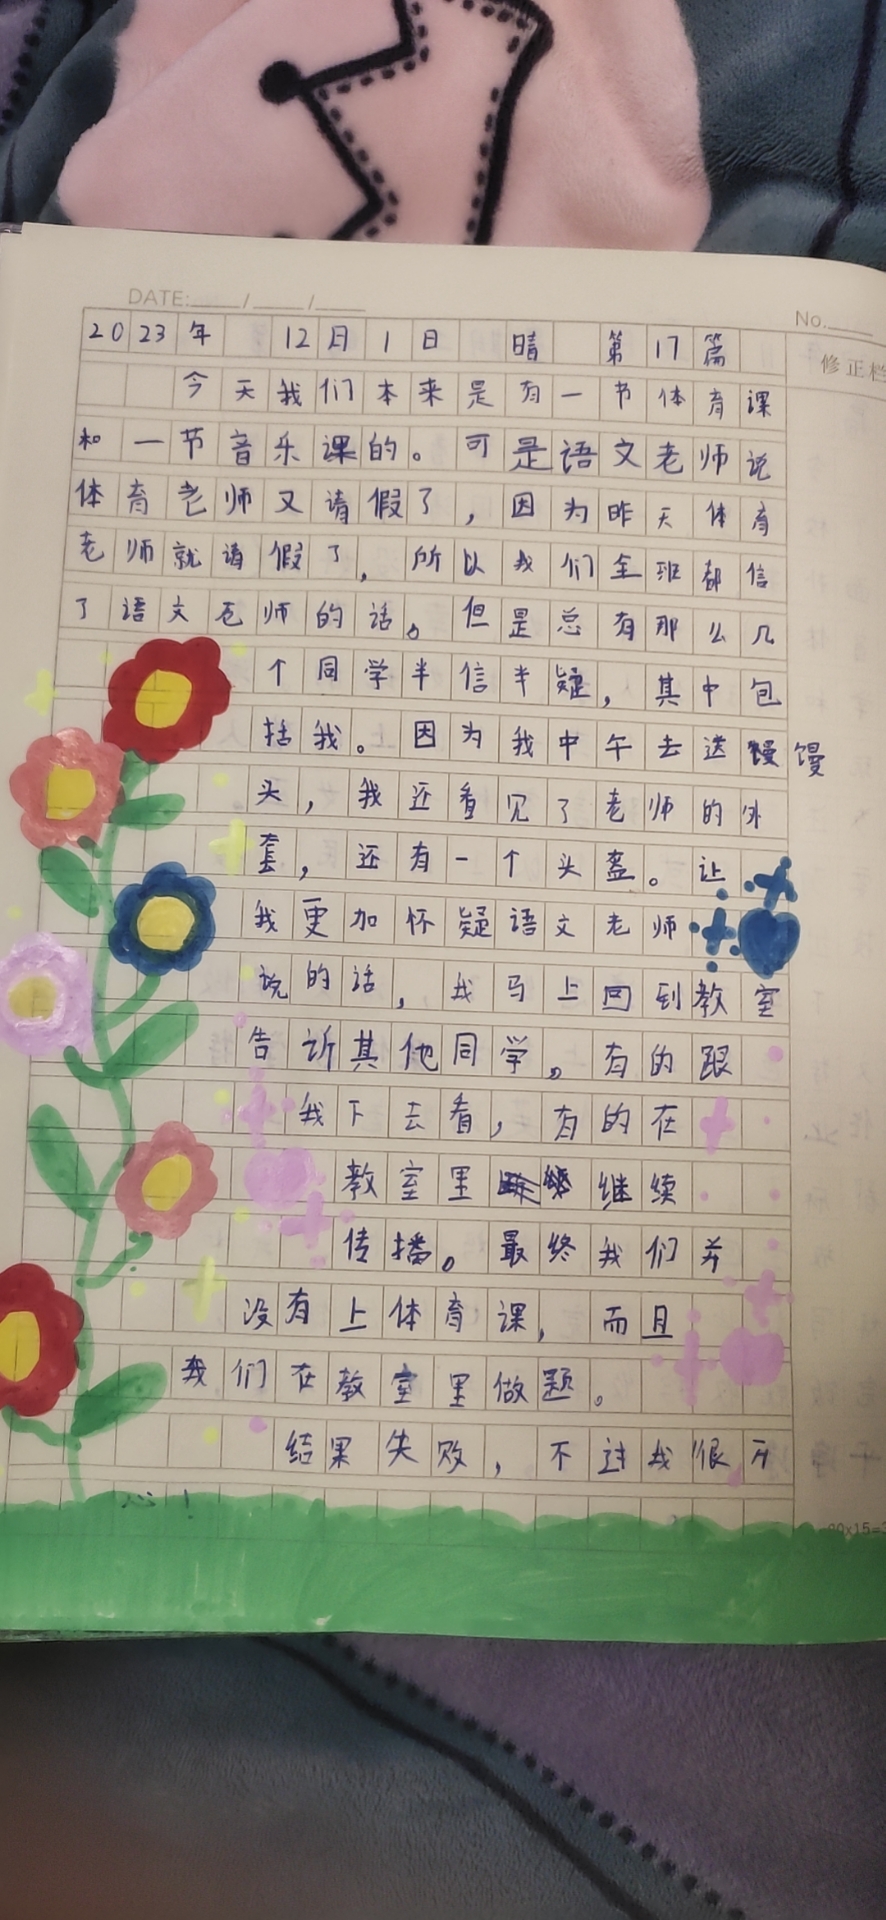 DATE:____/____/____
No.____
修正栏
2023年 12月1日 晴 第17篇
今天我们本来是有一节体育课
和一节音乐课的。可是语文老师说
体育老师又请假了，因为昨天体育
老师就请假了，所以我们全班都信
了语文老师的话。但是总有那么几
个同学半信半疑，其中包
括我。因为我中午去送馒馒
头，我还看见了老师的外
套，还有一个头盔。让
我更加怀疑语文老师
说的话，我马上回到教室
告诉其他同学。有的跟
我下去看，有的在
教室里继续
传播。最终我们并
没有上体育课，而且
我们在教室里做题。
结果失败，不过我很开
心！
20x15=3